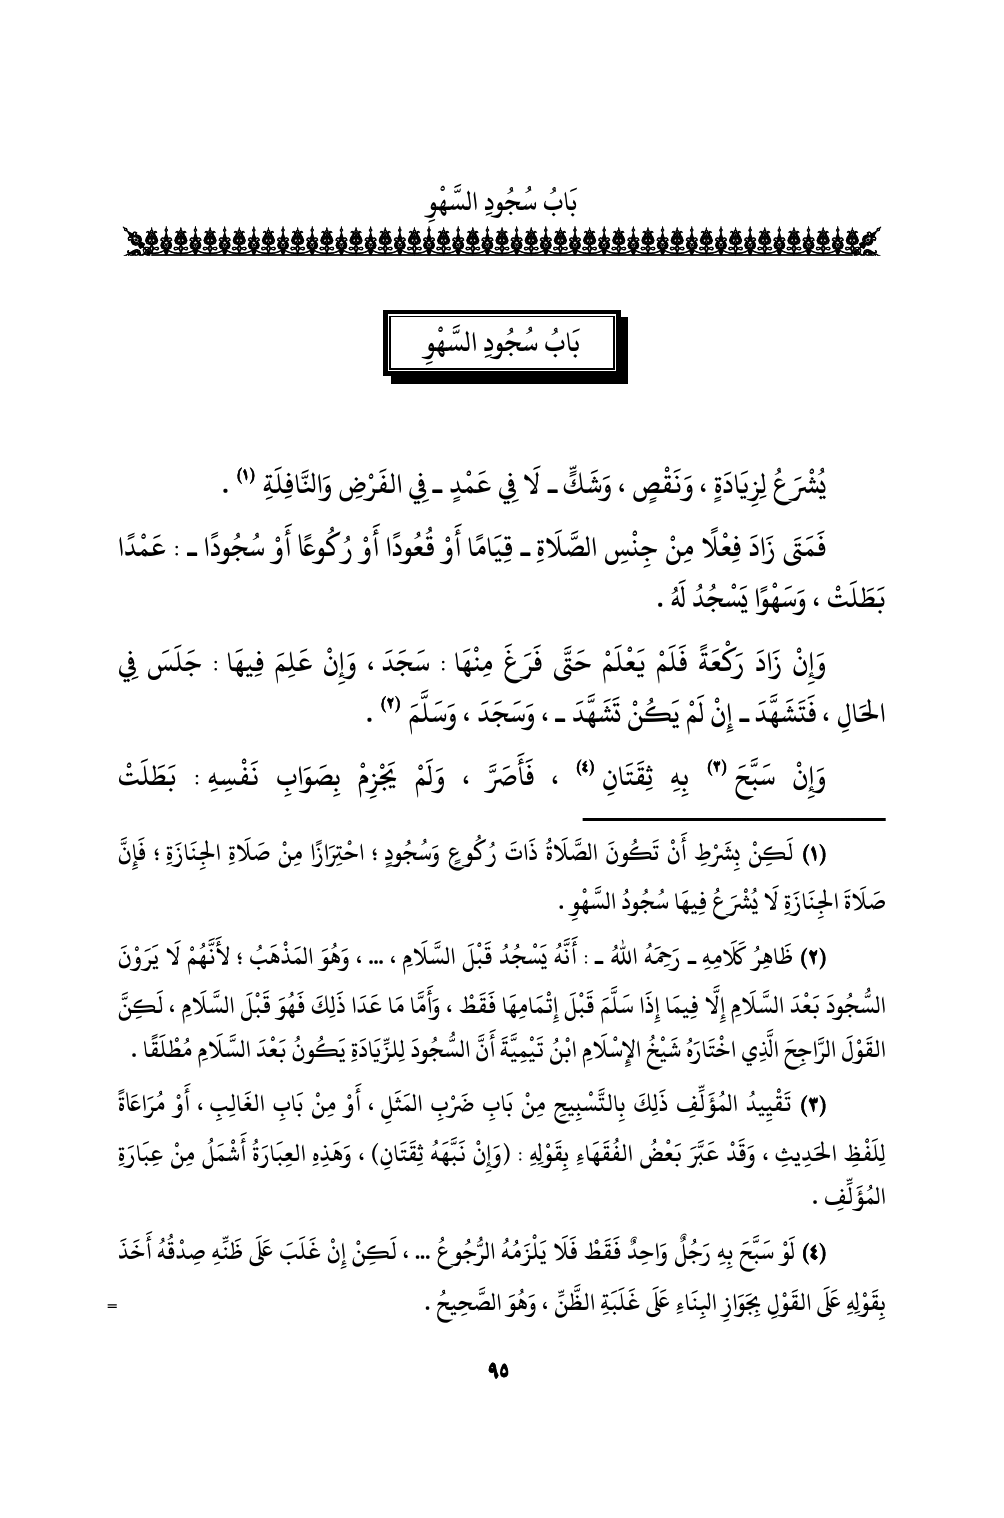 بَابُ سُجُودِ السَّهْوِ
بَابُ سُجُودِ السَّهْوِ
يُشْرَعُ لِزِيَادَةٍ ، وَنَقْصٍ ، وَشَكٍّ ـ لَا فِي عَمْدٍ ـ فِي الفَرْضِ وَالنَّافِلَةِ (١) .
فَمَتَى زَادَ فِعْلًا مِنْ جِنْسِ الصَّلَاةِ ـ قِيَامًا أَوْ قُعُودًا أَوْ رُكُوعًا أَوْ سُجُودًا ـ : عَمْدًا
بَطَلَتْ ، وَسَهْوًا يَسْجُدُ لَهُ .
وَإِنْ زَادَ رَكْعَةً فَلَمْ يَعْلَمْ حَتَّى فَرَغَ مِنْهَا : سَجَدَ ، وَإِنْ عَلِمَ فِيهَا : جَلَسَ فِي
الحَالِ ، فَتَشَهَّدَ ـ إِنْ لَمْ يَكُنْ تَشَهَّدَ ـ ، وَسَجَدَ ، وَسَلَّمَ (٢) .
وَإِنْ سَبَّحَ (٣) بِهِ ثِقَتَانِ (٤) ، فَأَصَرَّ ، وَلَمْ يَجْزِمْ بِصَوَابِ نَفْسِهِ : بَطَلَتْ
(١) لَكِنْ بِشَرْطِ أَنْ تَكُونَ الصَّلَاةُ ذَاتَ رُكُوعٍ وَسُجُودٍ ؛ احْتِرَازًا مِنْ صَلَاةِ الجِنَازَةِ ؛ فَإِنَّ
صَلَاةَ الجِنَازَةِ لَا يُشْرَعُ فِيهَا سُجُودُ السَّهْوِ .
(٢) ظَاهِرُ كَلَامِهِ ـ رَحِمَهُ اللهُ ـ : أَنَّهُ يَسْجُدُ قَبْلَ السَّلَامِ ، ... ، وَهُوَ المَذْهَبُ ؛ لأَنَّهُمْ لَا يَرَوْنَ
السُّجُودَ بَعْدَ السَّلَامِ إِلَّا فِيمَا إِذَا سَلَّمَ قَبْلَ إِتْمَامِهَا فَقَطْ ، وَأَمَّا مَا عَدَا ذَلِكَ فَهُوَ قَبْلَ السَّلَامِ ، لَكِنَّ
القَوْلَ الرَّاجِحَ الَّذِي اخْتَارَهُ شَيْخُ الإِسْلَامِ ابْنُ تَيْمِيَّةَ أَنَّ السُّجُودَ لِلزِّيَادَةِ يَكُونُ بَعْدَ السَّلَامِ مُطْلَقًا .
(٣) تَقْيِيدُ المُؤَلِّفِ ذَلِكَ بِالتَّسْبِيحِ مِنْ بَابِ ضَرْبِ المَثَلِ ، أَوْ مِنْ بَابِ الغَالِبِ ، أَوْ مُرَاعَاةً
لِلَفْظِ الحَدِيثِ ، وَقَدْ عَبَّرَ بَعْضُ الفُقَهَاءِ بِقَوْلِهِ : (وَإِنْ نَبَّهَهُ ثِقَتَانِ) ، وَهَذِهِ العِبَارَةُ أَشْمَلُ مِنْ عِبَارَةِ
المُؤَلِّفِ .
(٤) لَوْ سَبَّحَ بِهِ رَجُلٌ وَاحِدٌ فَقَطْ فَلَا يَلْزَمُهُ الرُّجُوعُ ... ، لَكِنْ إِنْ غَلَبَ عَلَى ظَنِّهِ صِدْقُهُ أَخَذَ
بِقَوْلِهِ عَلَى القَوْلِ بِجَوَازِ البِنَاءِ عَلَى غَلَبَةِ الظَّنِّ ، وَهُوَ الصَّحِيحُ . =
٩٥